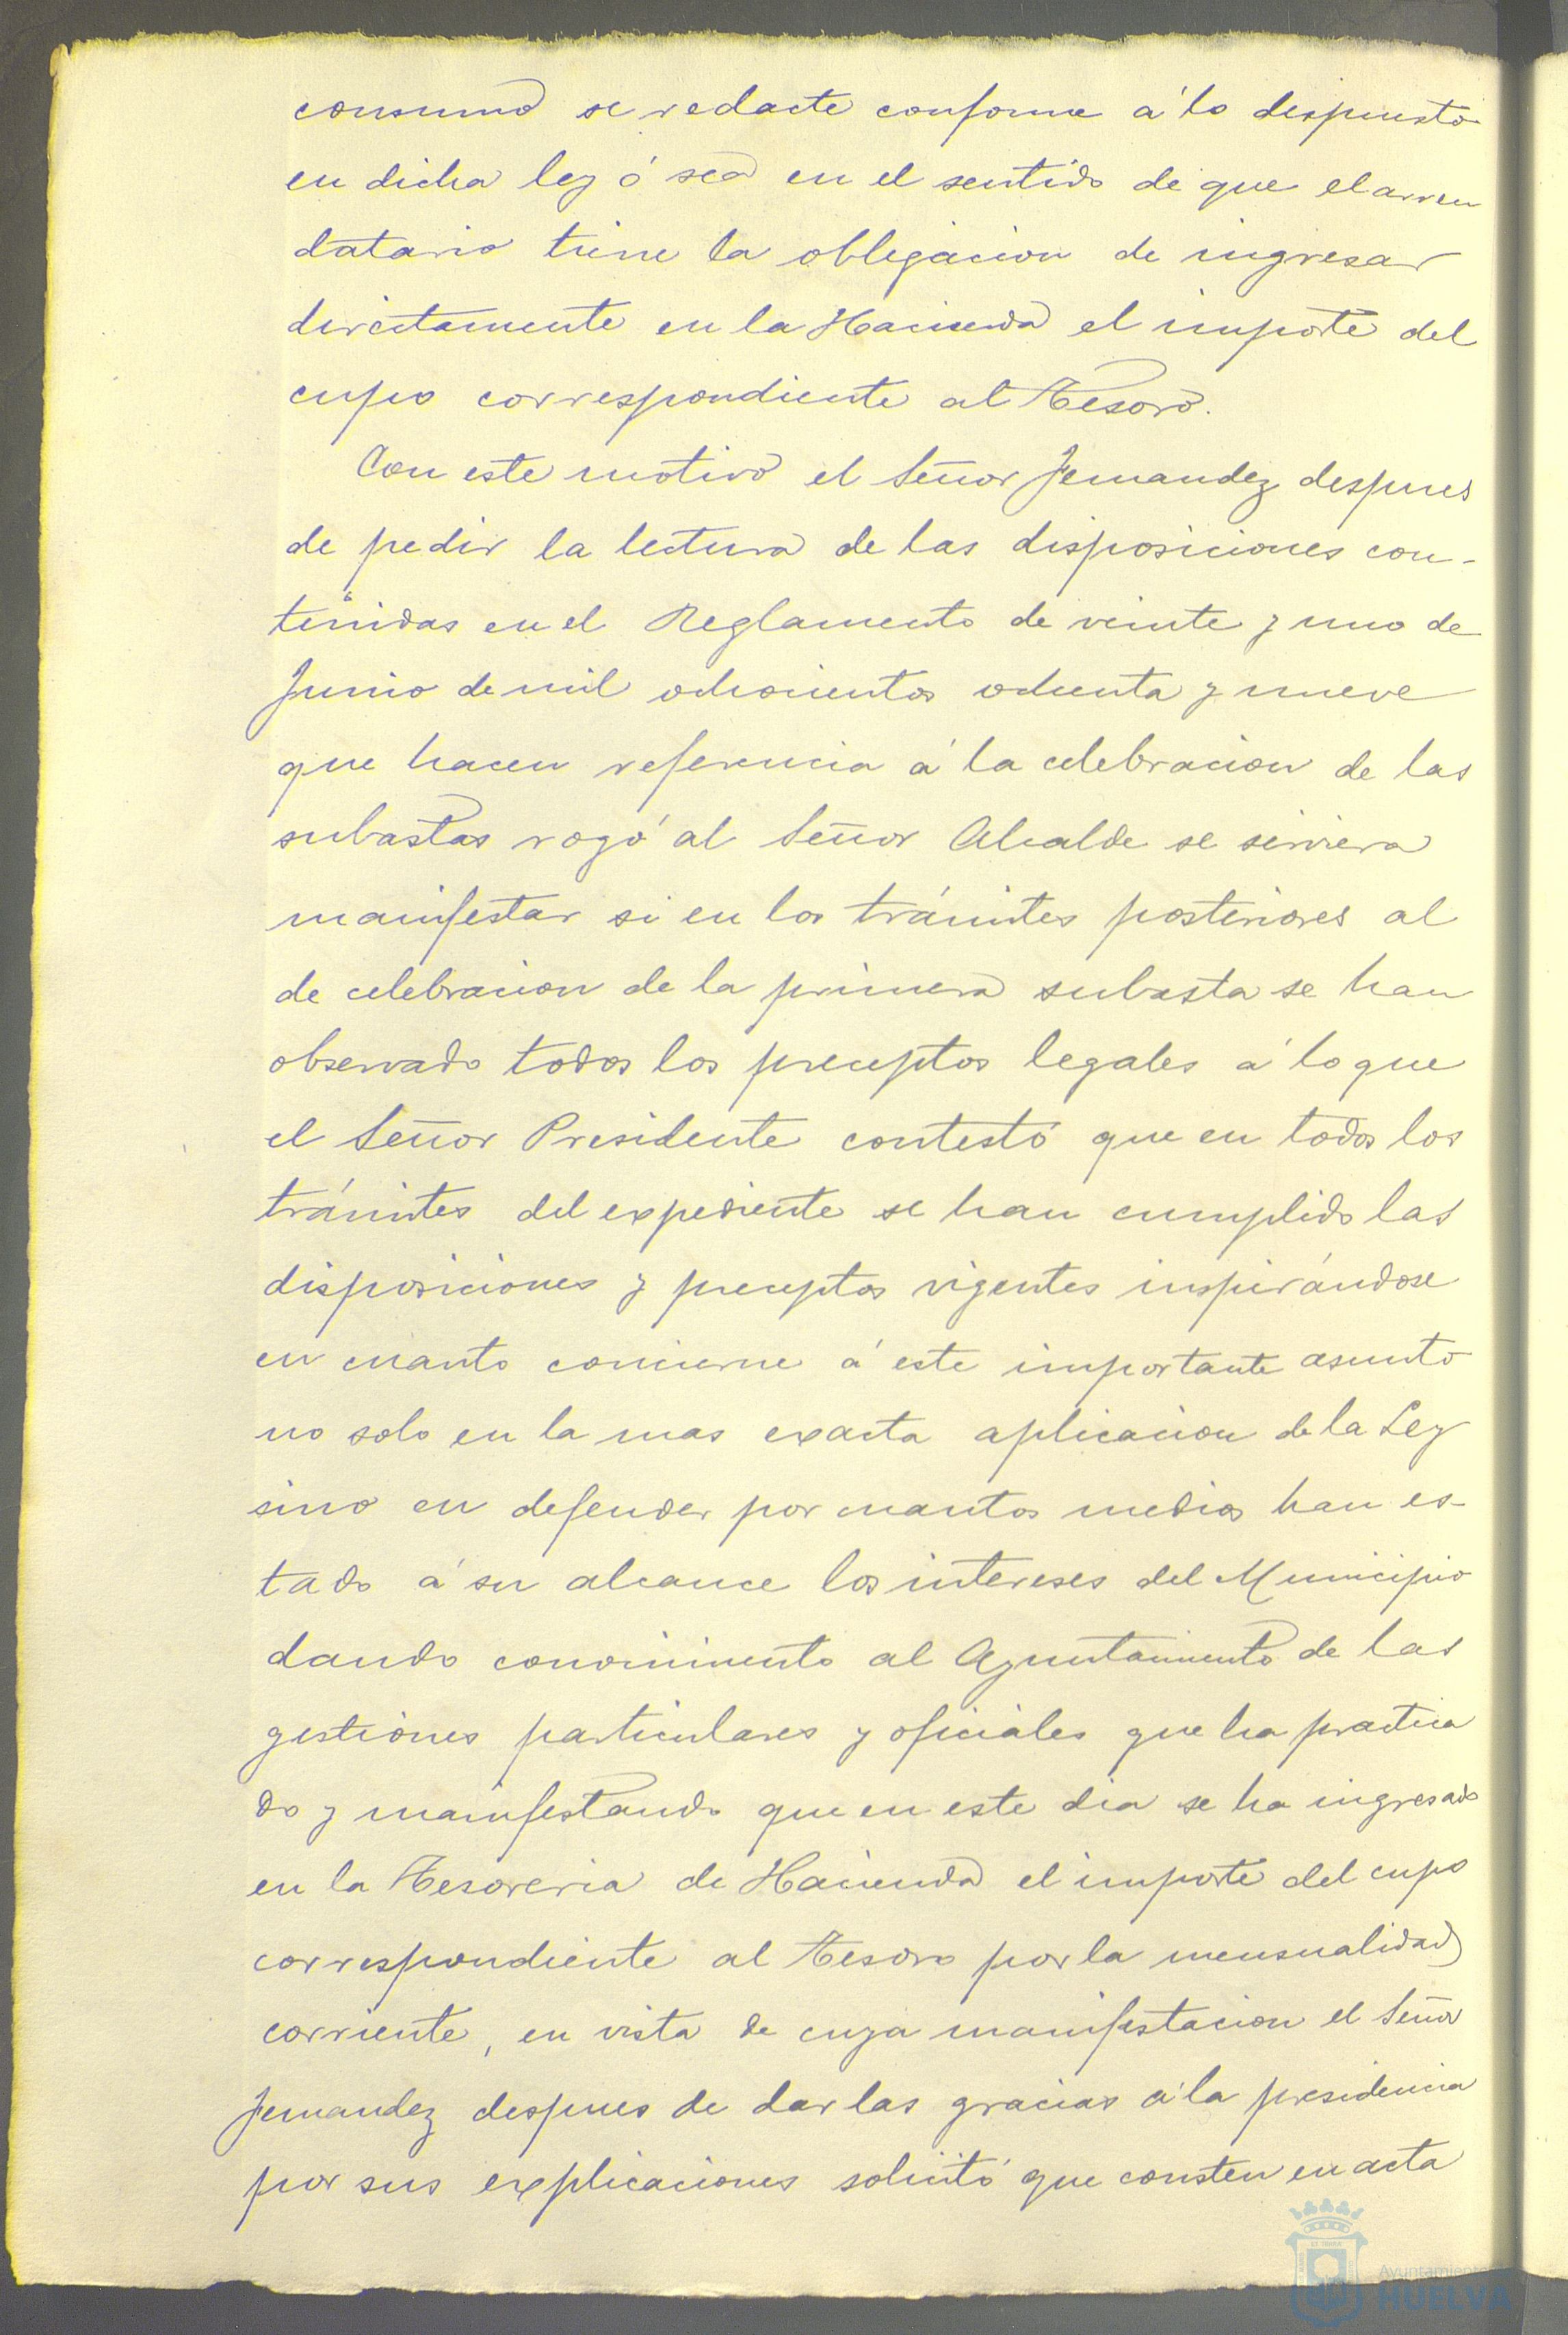 consumo se redacte conforme á lo dispuesto
en dicha ley ó sea en el sentido de que el arren
datario tiene la obligacion de ingresar
directamente en la Hacienda el importe del
cupo correspondiente al Tesoro.
Con este motivo el Señor Fernandez despues
de pedir la lectura de las disposiciones con-
tenidas en el Reglamento de veinte y uno de
Junio de mil ochocientos ochenta y nueve
que hacen referencia á la celebracion de las
subastas rogó al Señor Alcalde se sirviera
manifestar si en los trámites posteriores al
de celebracion de la primera subasta se han
observado todos los preceptos legales á lo que
el Señor Presidente contestó que en todos los
trámites del expediente se han cumplido las
disposiciones y preceptos vigentes inspirándose
en cuanto concierne á este importante asunto
no solo en la mas exacta aplicacion de la Ley
sino en defender por cuantos medios han es-
tado á su alcance los intereses del Municipio
dando conocimiento al Ayuntamiento de las
gestiones particulares y oficiales que ha practica
do y manifestando que en este dia se ha ingresado
en la Tesoreria de Hacienda el importe del cupo
correspondiente al Tesoro por la mensualidad
corriente, en vista de cuya manifestacion el Señor
Fernandez despues de dar las gracias á la presidencia
por sus explicaciones solicitó que consten en acta
Ayuntamiento
HUELVA